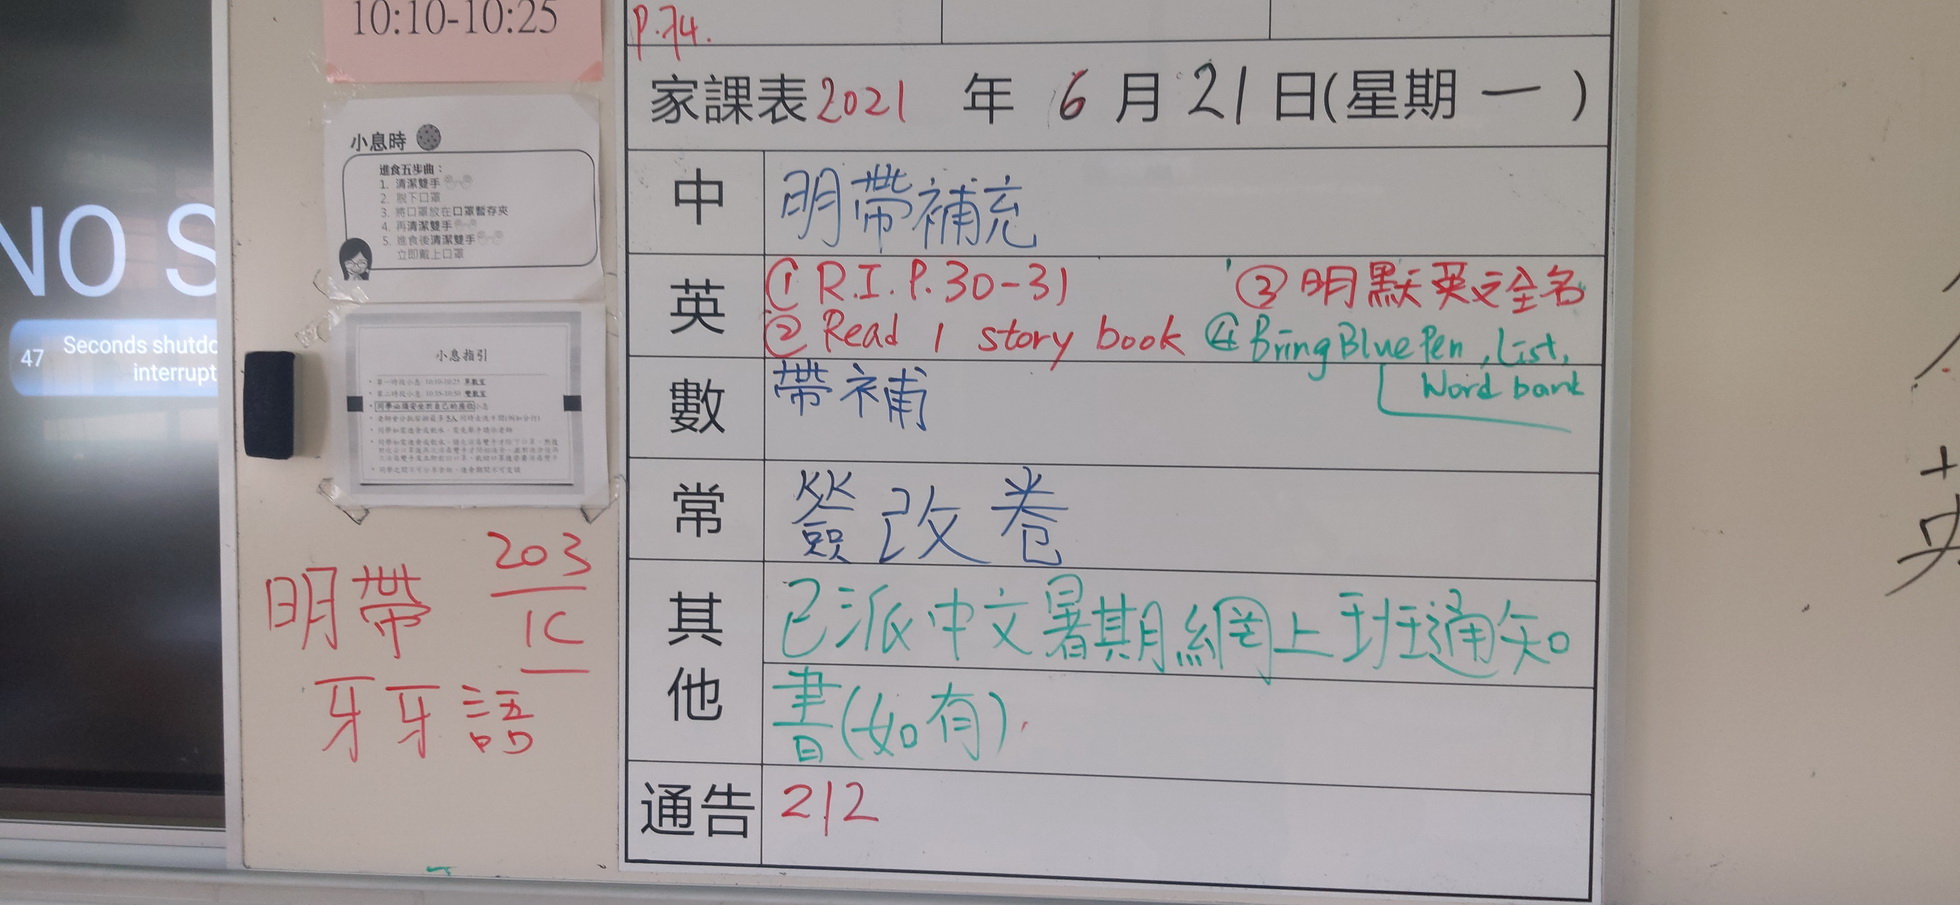 10:10-10:25
小息時
進食五步曲：
1. 清潔雙手
2. 脫下口罩
3. 將口罩放在口罩暫存夾
4. 再清潔雙手
5. 進食後清潔雙手
立即戴上口罩
NO S
47 Seconds shutdo
interrupt
小息指引
明帶 203/1C
牙牙語
P.74.
家課表2021 年 6 月 21 日(星期一)
中 明帶補充
英 ① R.I. P.30-31 ③ 明默英文全名
② Read 1 story book ④ Bring Blue Pen, List,
Word bank
數 帶補
常 簽改卷
其他 已派中文暑期網上班通知
書(如有).
通告 212
英